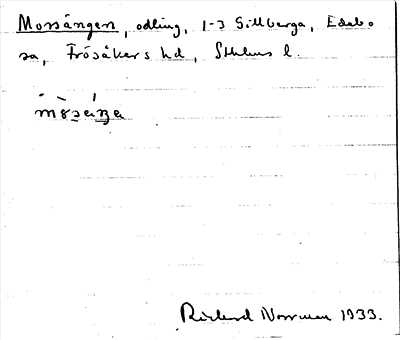 Mossängen, odling, 1-3 Gillberga, Edebo
sn, Frösåkers hd, Sthlms l.
Richard Norrman 1933.